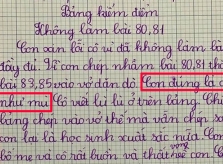 Bảng kiểm đếm
Không làm bài 80,81
Con xem lại cô vì đã không làm bà
đầy đủ. Tí con chép nhầm bài 80,81 th
bài 83,85 vào vở dán đó. Con đúng là
như mù. Cô viết lù lù ở trên bảng. Ch
bảng chép vào vở thế mà vẫn chép
con lại là học sinh xuất sắc nữa. Con
bố mẹ và cô hài buồn và thất